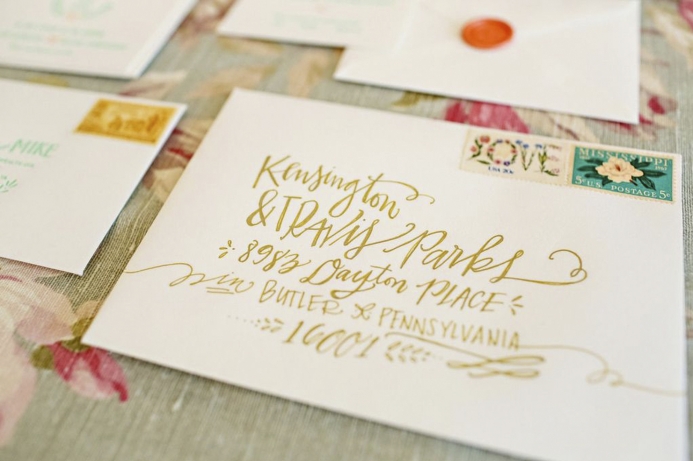 Kensington
& TRAVIS Parks
8983 Dayton PLACE
in BUTLER & PENNSYLVANIA
16001
LOVE
USA 20c
MISSISSIPPI
5c U.S. POSTAGE 5c
MIKE